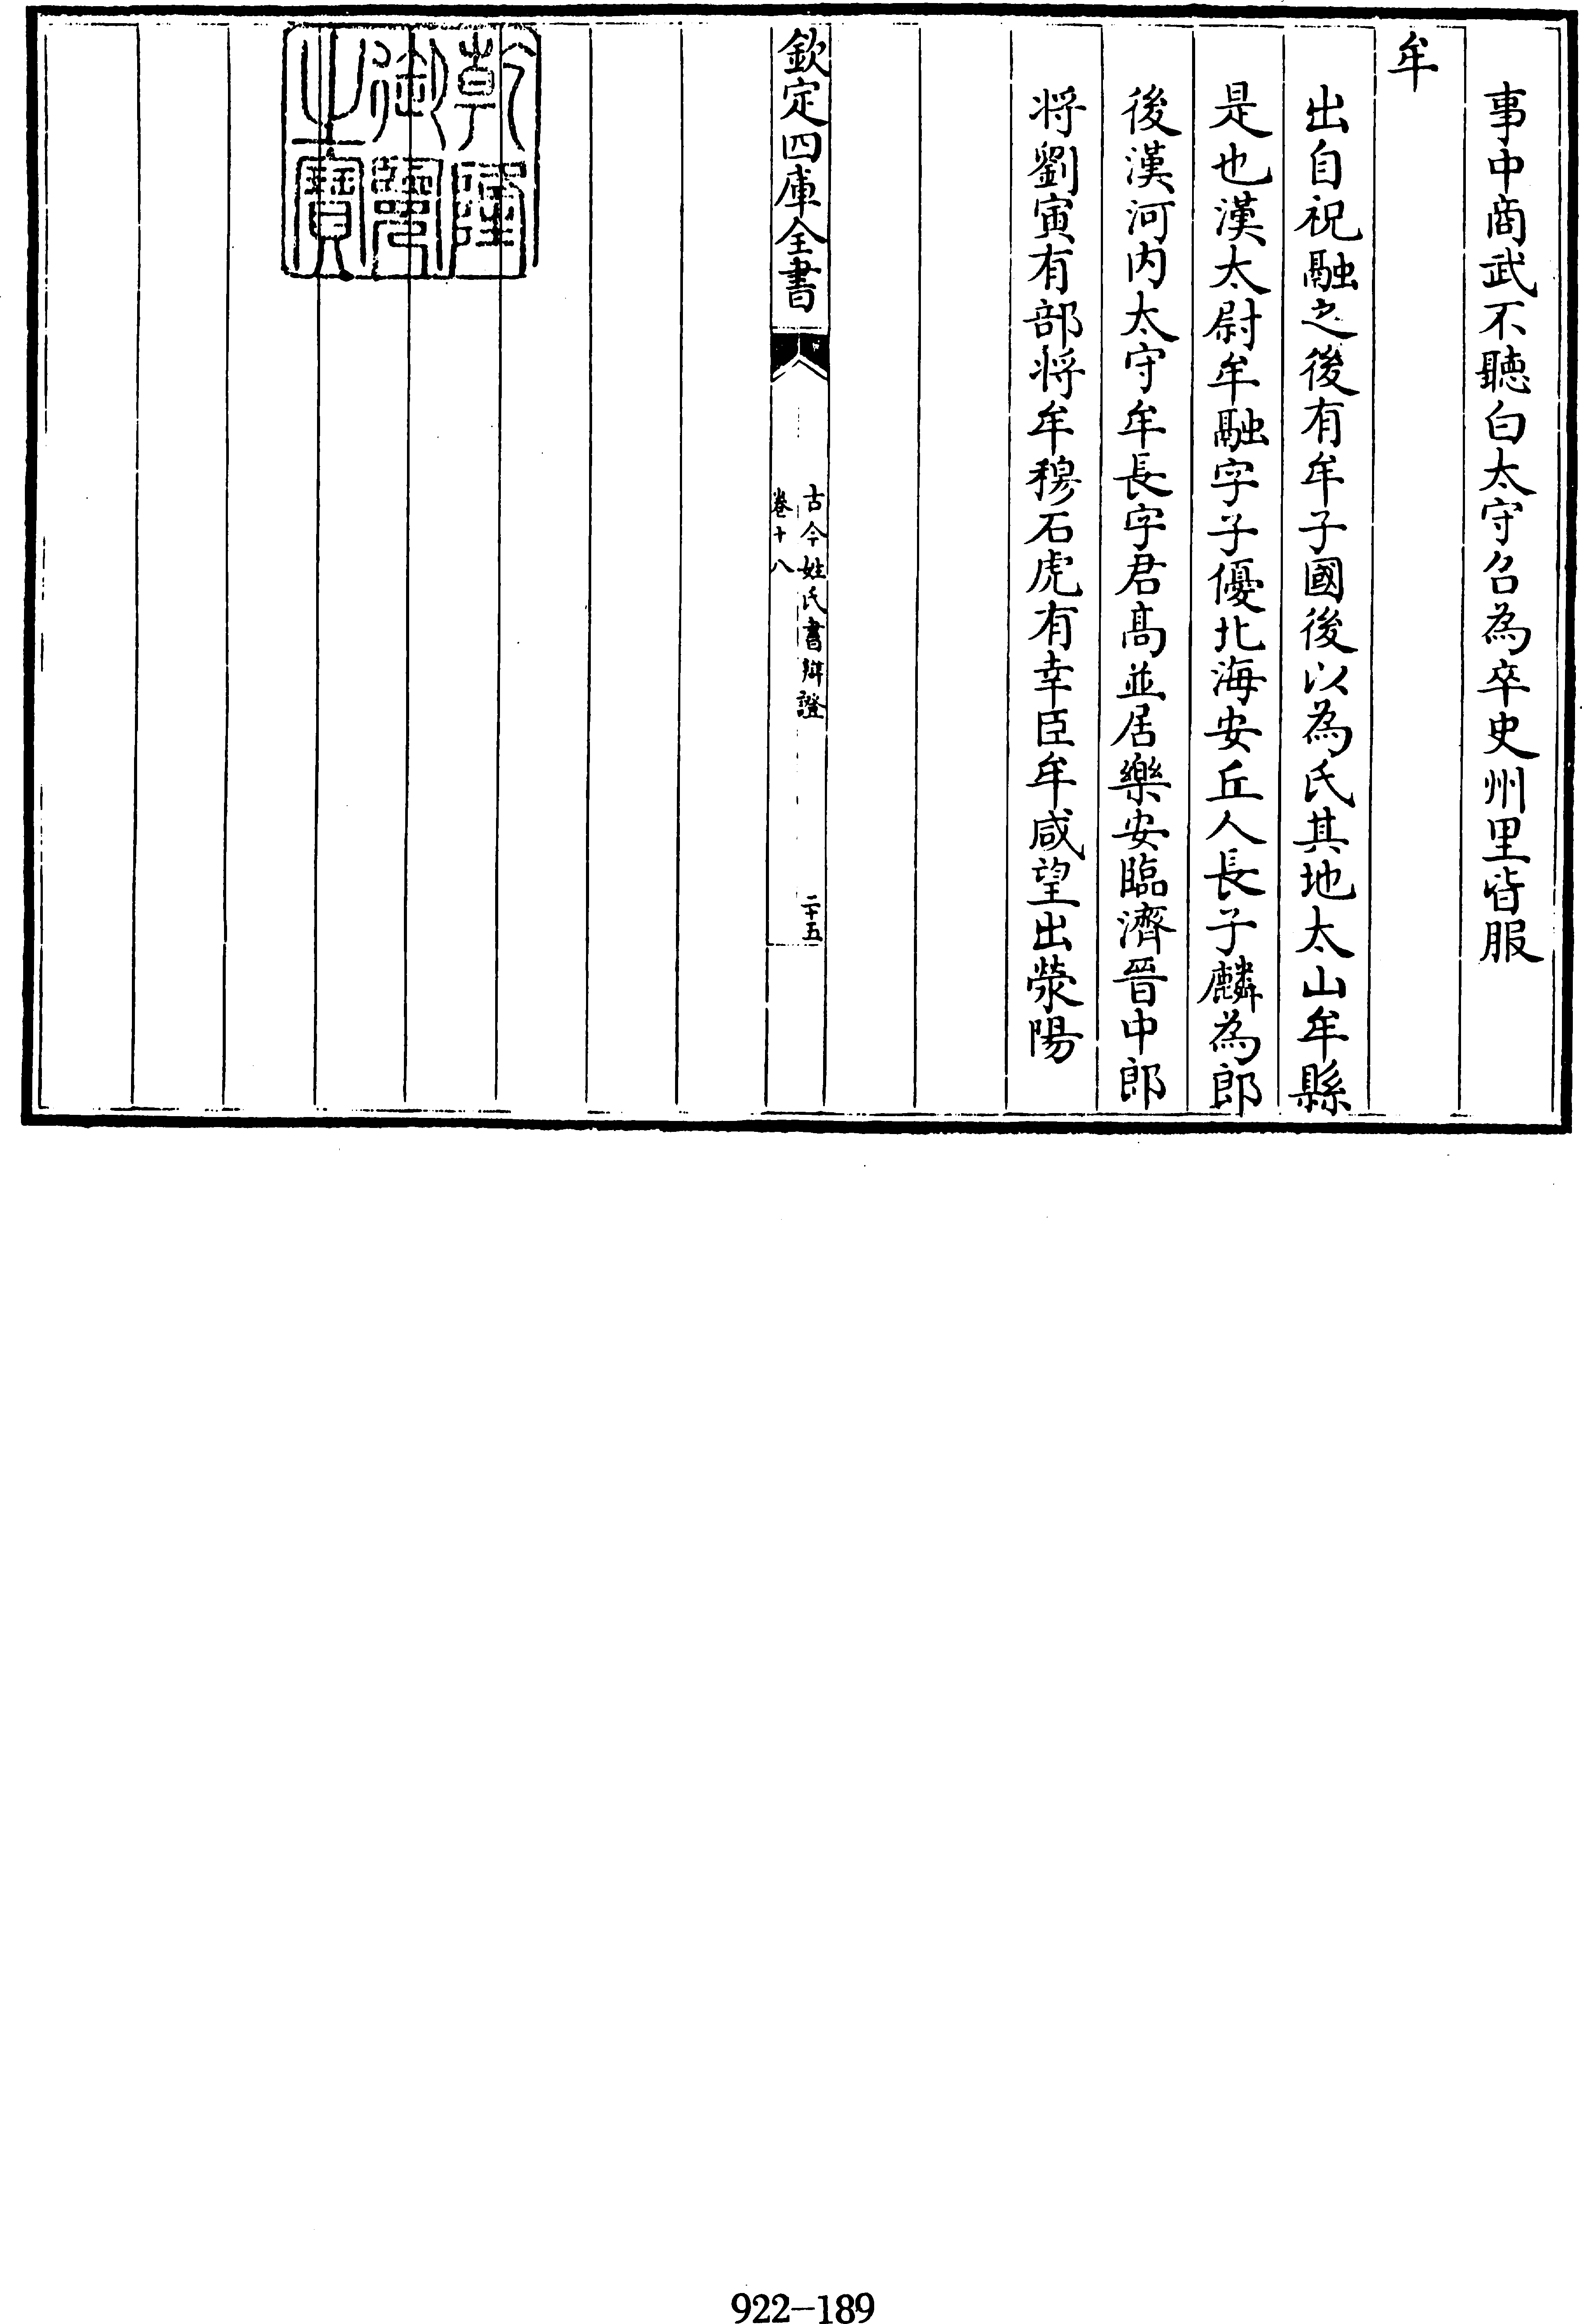 事中商武不聽白太守召為卒史州里皆服
牟
出自祝融之後有牟子國後以為氏其地太山牟縣
是也漢太尉牟融字子優北海安丘人長子麟為郎
後漢河內太守牟長字君髙並居樂安臨濟晉中郎
将劉寅有部将牟穆石虎有幸臣牟咸望出滎陽
欽定四庫全書
古今姓氏書辯證
卷十八
二十五
乾隆
御覽
之寶
922-189